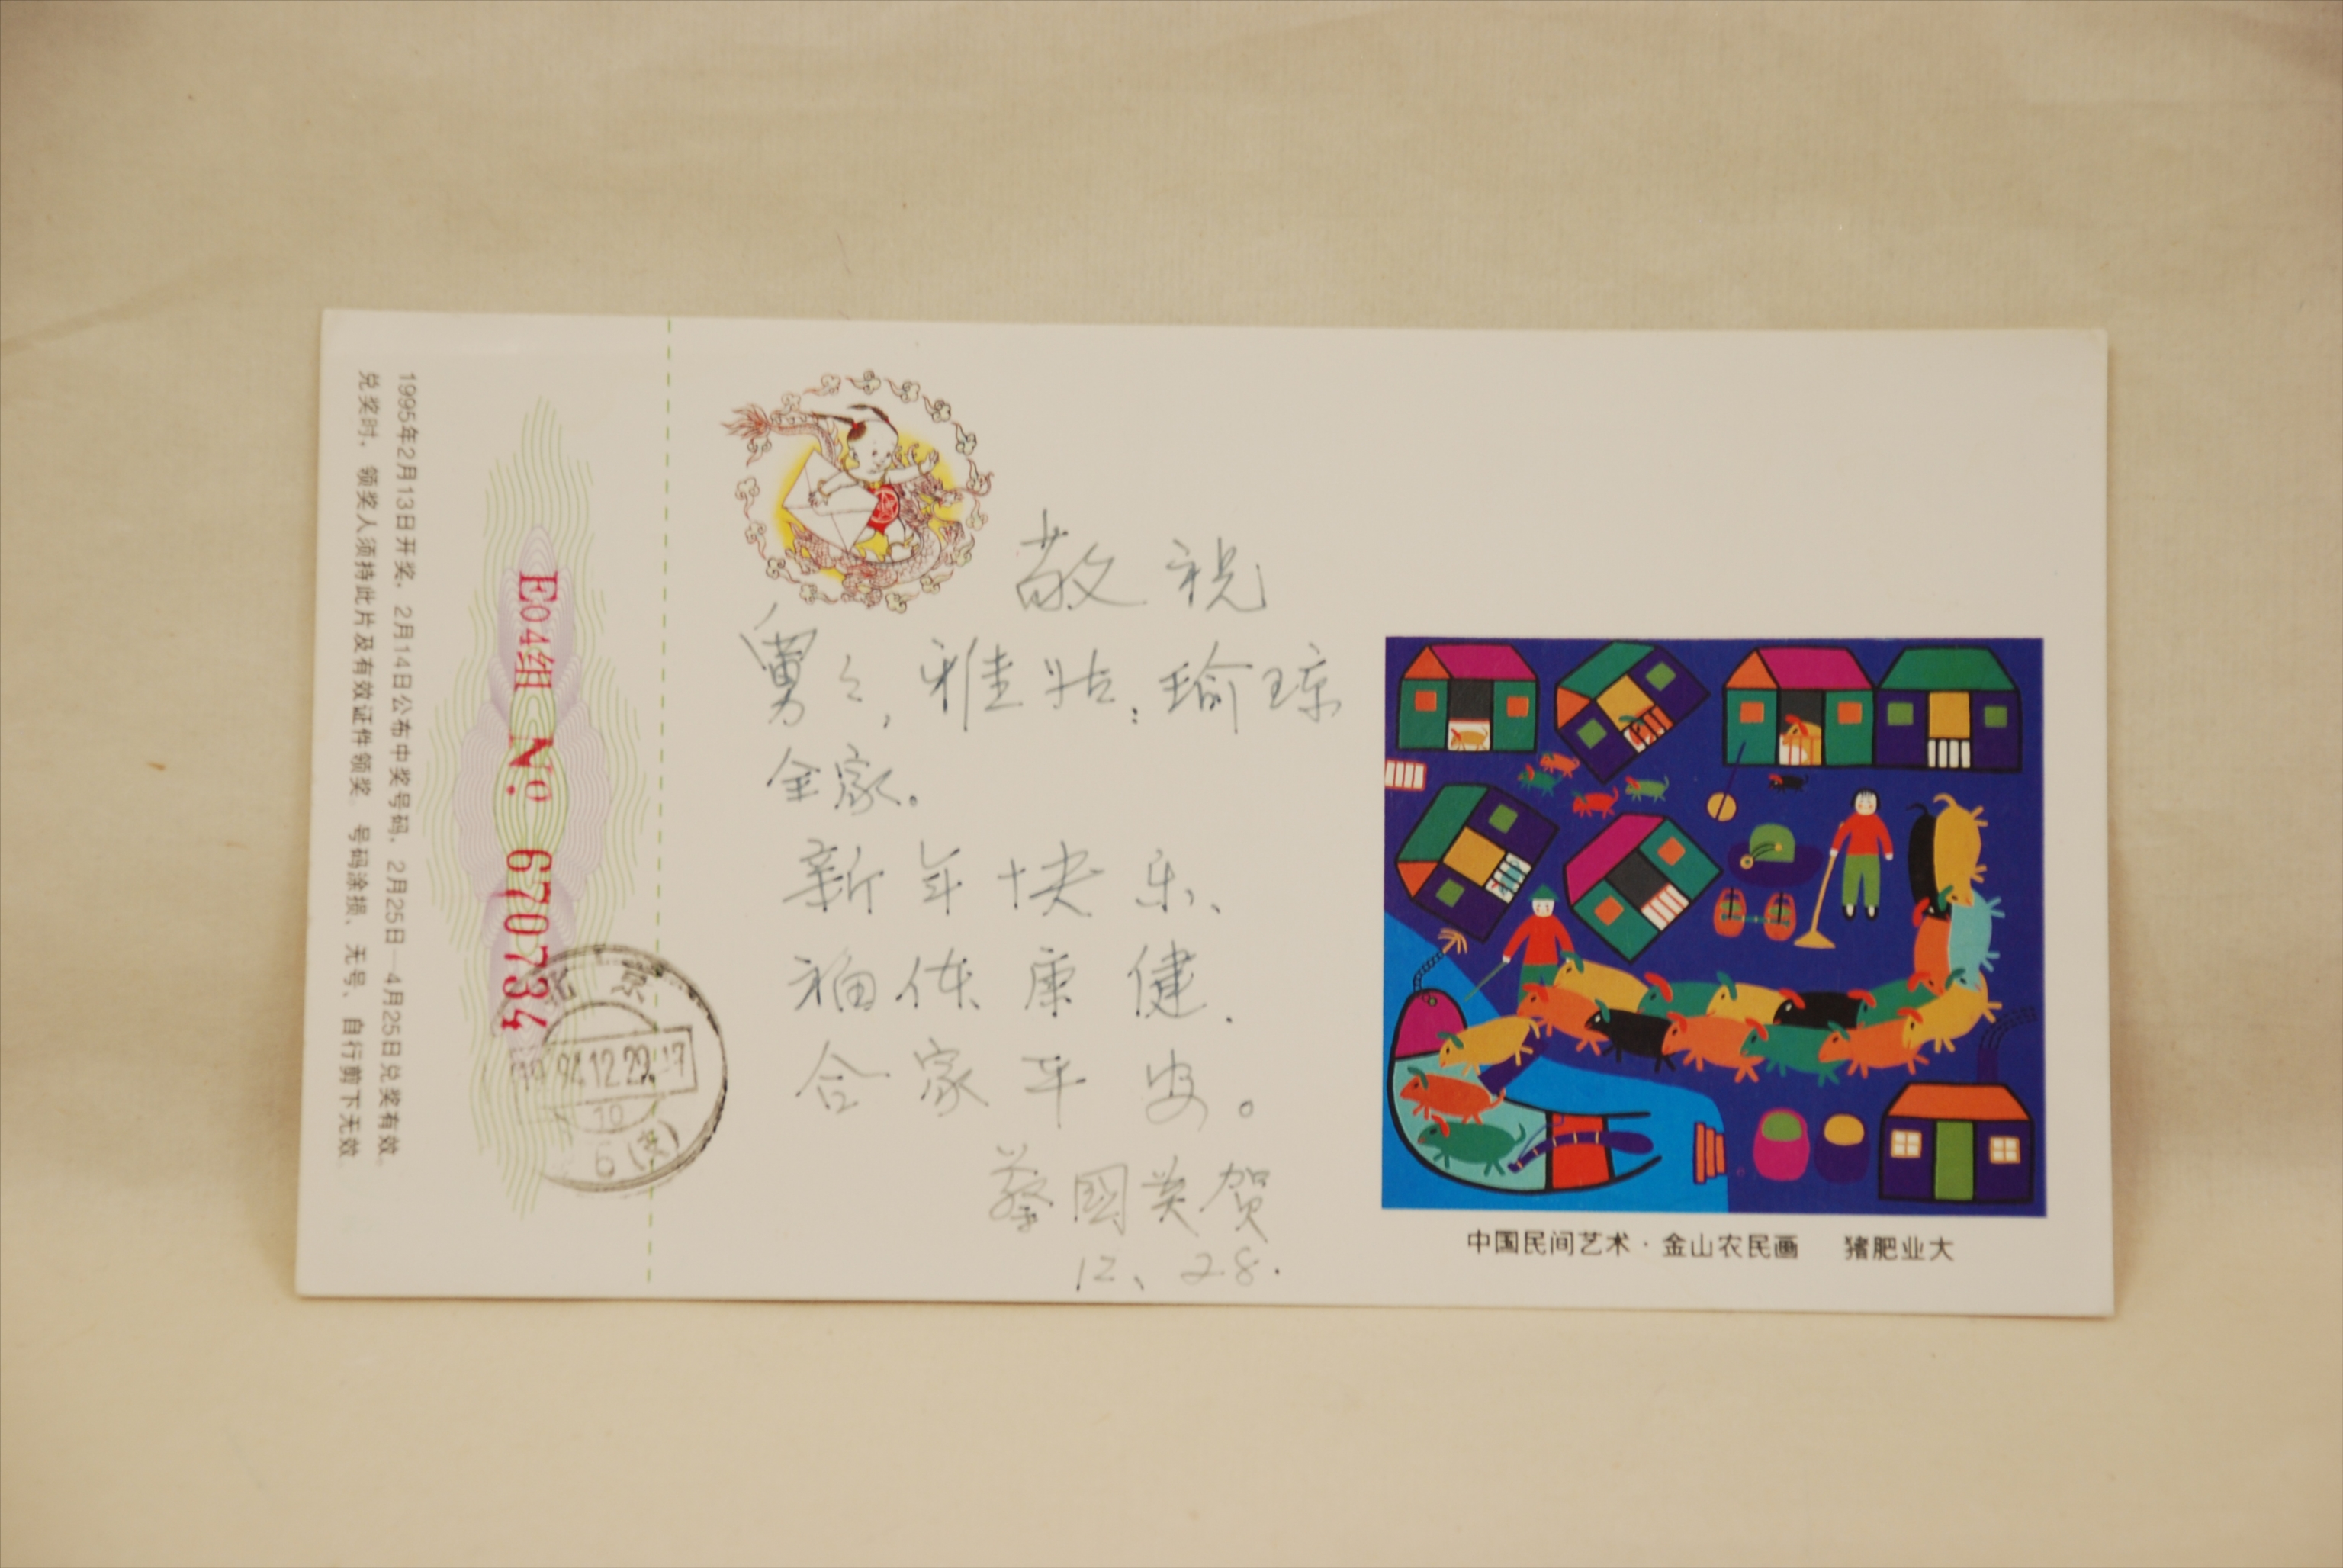 1995年2月13日开奖、2月14日公布中奖号码、2月25日—4月25日兑奖有效。
兑奖时，领奖人须持此片及有效证件领奖。号码涂损、无号、自行剪下无效。
E04组 No. 670734
北京
12.29.17
6
敬祝
舅々，雅姑：瑜琼
全家。
新年快乐、
福体康健.
合家平安。
蔡國英贺
12、28.
中国民间艺术·金山农民画 猪肥业大